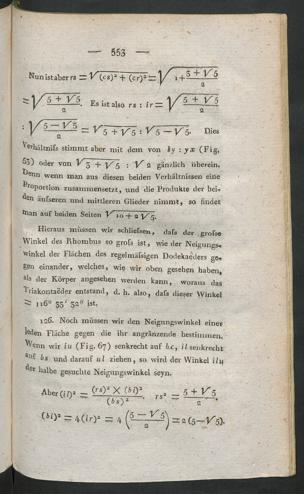 — 553 —
Nun ist aber rs = √((cs)² + (cr)²) = √(1 + (5 + √5)/2)
= √((5 + √5)/2). Es ist also rs : ir = √((5 + √5)/2)
: √((5 — √5)/2) = √(5 + √5) : √(5 — √5). Dies
Verhältniſs stimmt aber mit dem von
63) oder von √(3 + √5) : √2 gänzlich überein.
Denn wenn man aus diesen beiden Verhältnissen eine
Proportion zusammensetzt, und die Produkte der bei-
den äuſseren und mittleren Glieder nimmt, so findet
man auf beiden Seiten √(10 + 2√5).
Hieraus müssen wir schlieſsen, daſs der groſse
Winkel des Rhombus so groſs ist, wie der Neigungs-
winkel der Flächen des regelmäſsigen Dodekaëders ge-
gen einander, welches, wie wir oben gesehen haben,
als der Körper angesehen werden kann, woraus das
Triakontaëder entstand, d. h. also, daſs dieser Winkel
= 116° 33′ 52″ ist.
126. Noch müssen wir den Neigungswinkel einer
jeden Fläche gegen die ihr angränzende bestimmen.
Wenn wir iu (Fig. 67) senkrecht auf bc, il senkrecht
auf bs und darauf ul ziehen, so wird der Winkel ilu
der halbe gesuchte Neigungswinkel seyn.
Aber (il)² = ((rs)² × (bi)²)/(bs)². rs² = (5 + √5)/2.
(bi)² = 4(ir)² = 4((5 — √5)/2) = 2(5—√5).